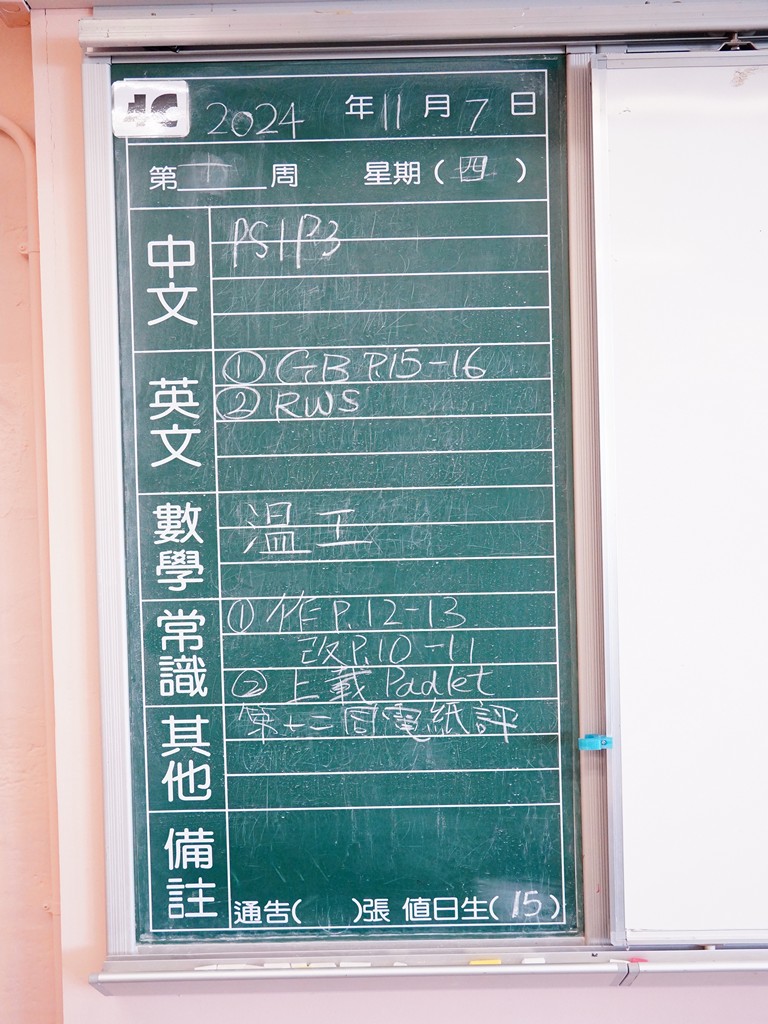 4C 2024 年 11 月 7 日
第 十 周 星期 ( 四 )
中文 PS1P3
英文 ① GB P.15-16
② RWS
數學 温工
常識 ① 作 P.12-13
改 P.10-11
② 上載 Padlet
其他 第十二 電紙評
備註
通告( )張 值日生( 15 )